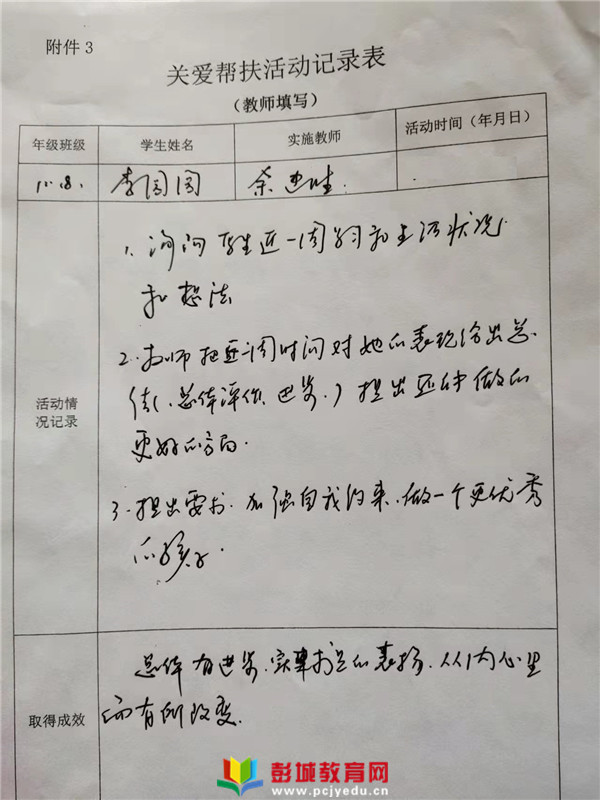 附件 3
关爱帮扶活动记录表
（教师填写）
年级班级 学生姓名 实施教师 活动时间（年月日）
李園園
1. 询问学生近一周学习和生活状况
和想法
2. 老师把近一周时间对她的表现给出总
结（总体评价、进步）提出还能做的
更好的方向.
3. 提出要求. 加强自我约束、做一个更优秀
的孩子.
活动情
况记录
总体有进步. 的表扬. 从内心里
面有所改变.
取得成效
彭城教育网
www.pcjyedu.cn